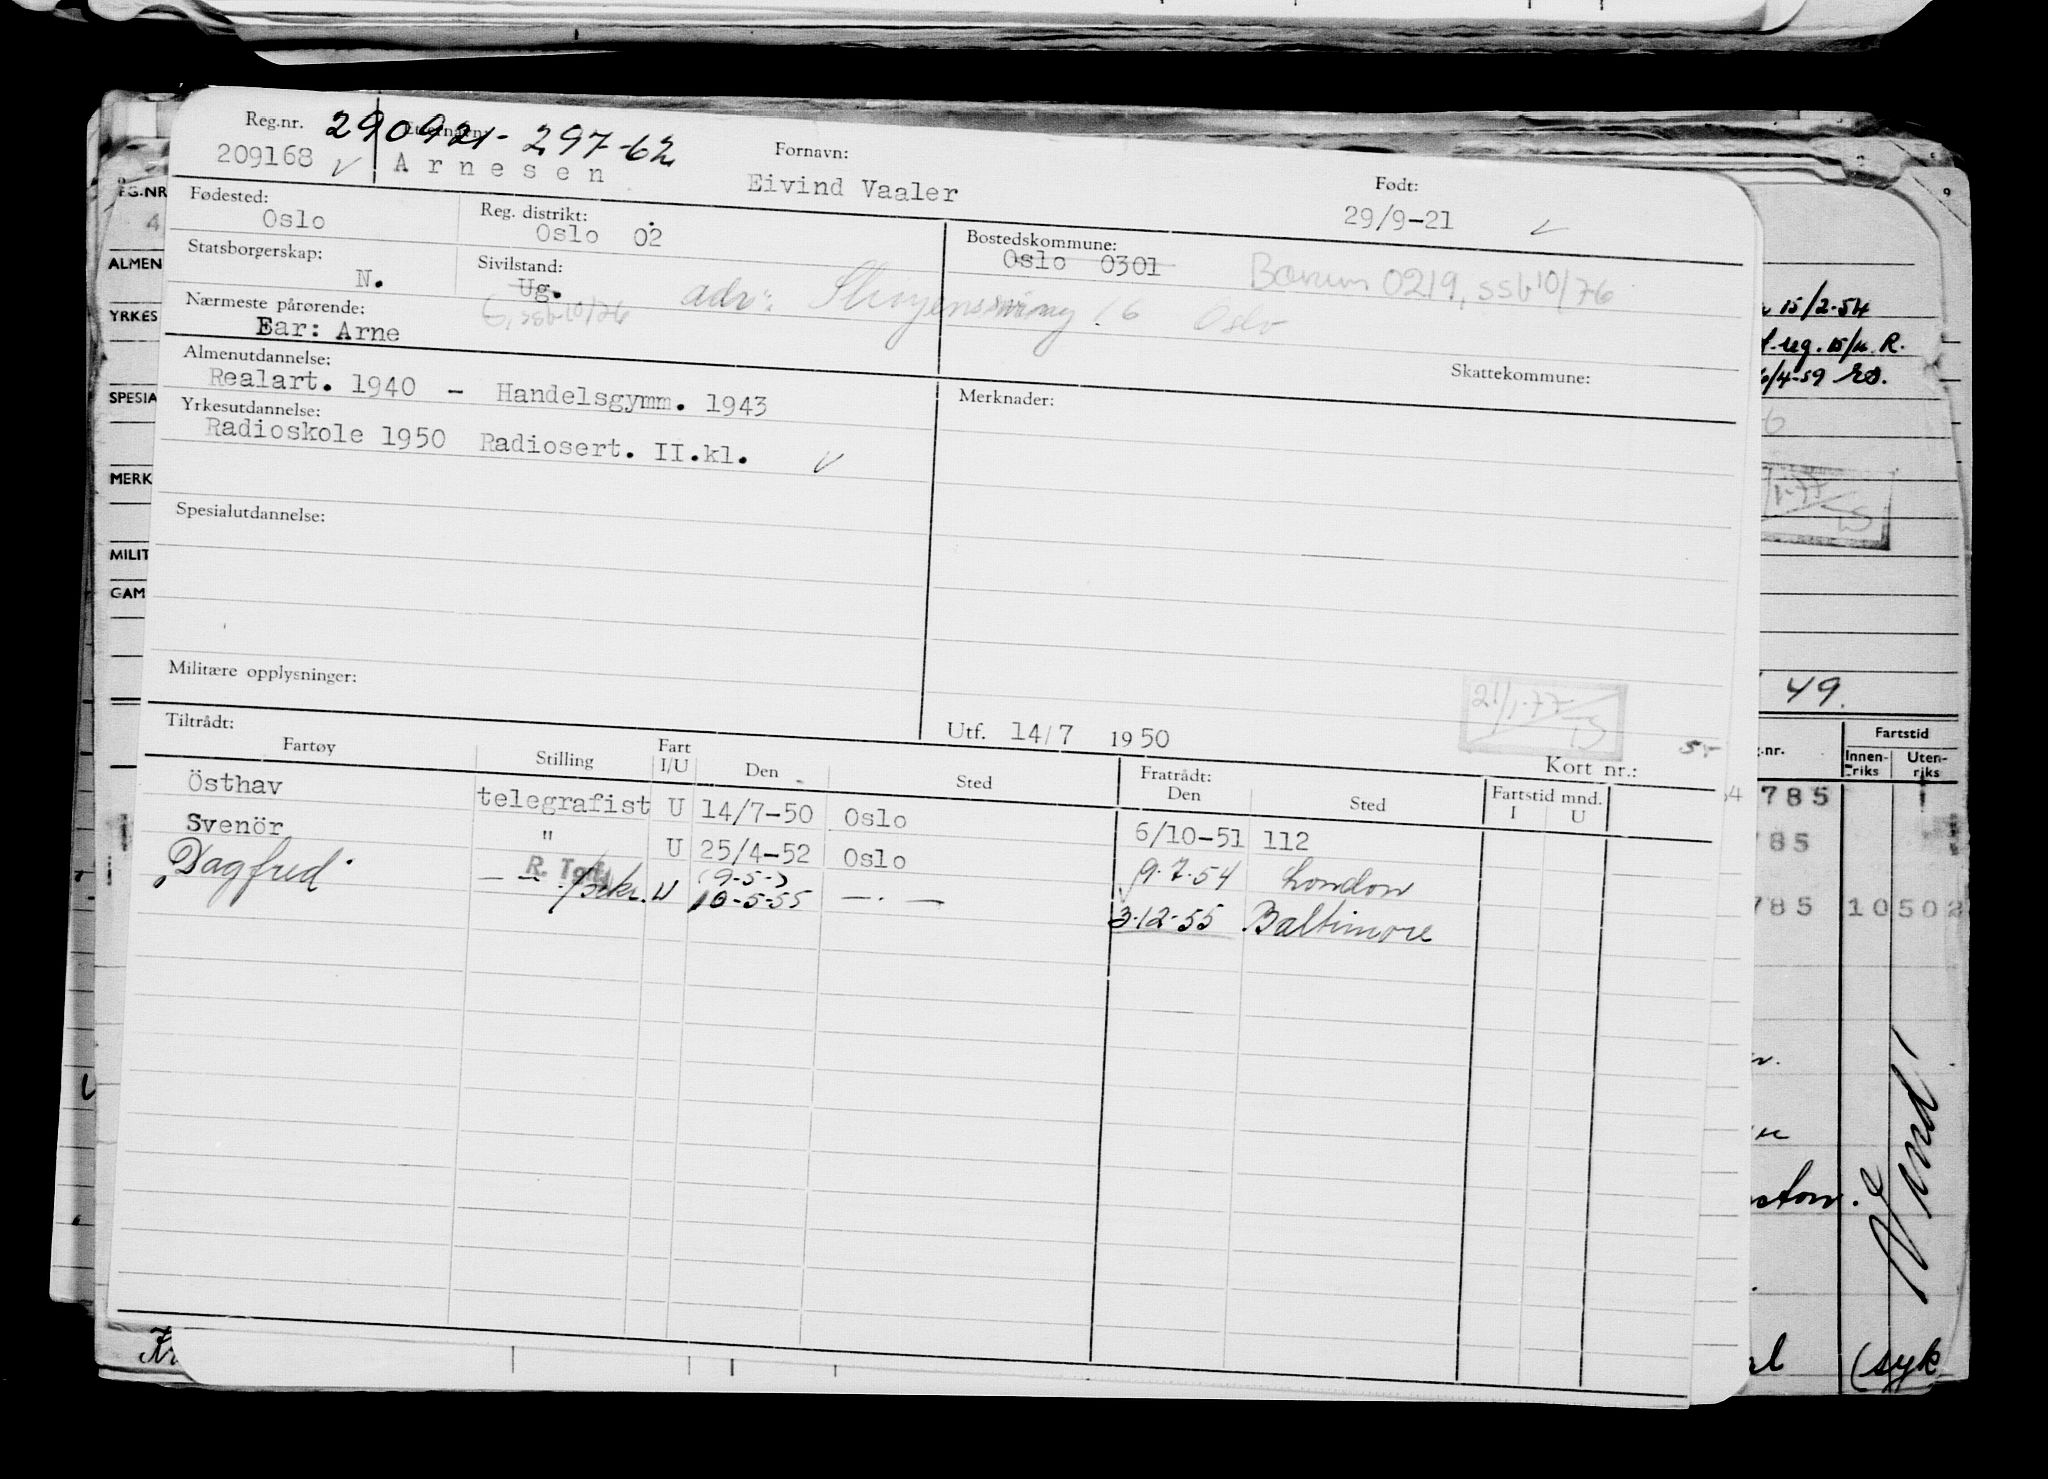 Reg.nr. 290921-297-62 Fornavn: Født:
209168 Arnesen Eivind Vaaler 29/9-21
Fødested: Reg. distrikt: Bostedskommune:
Oslo Oslo 02 Oslo 0301 Bærum 0219, ssb 10/76
Statsborgerskap: Sivilstand:
N. Ug. G, ssb 10/76 adr: 16 Oslo
Nærmeste pårørende:
Far: Arne
Almenutdannelse: Skattekommune:
Realart. 1940 - Handelsgymm. 1943 Merknader:
Yrkesutdannelse:
Radioskole 1950 Radiosert. II.kl.
Spesialutdannelse:
Militære opplysninger:
21/1-77
Tiltrådt: Utf. 14/7 1950 Kort nr.:
Fartøy Stilling Fart I/U Den Sted Fratrådt: Den Sted Fartstid mnd. I U
Östhav telegrafist U 14/7-50 Oslo 6/10-51 112
Svenör " U 25/4-52 Oslo 9.7.54 London
Dagfred U (9-5-) 10-5-55 3.12-55 Baltimore
REG.NR
4
ALMEN
YRKES
SPESIA
MERK
MILIT
GAM
15/2-54
6/4-59
1-77
49.
Fartstid
.nr. Innen-riks Uten-riks
785
785
785 10502
(syk